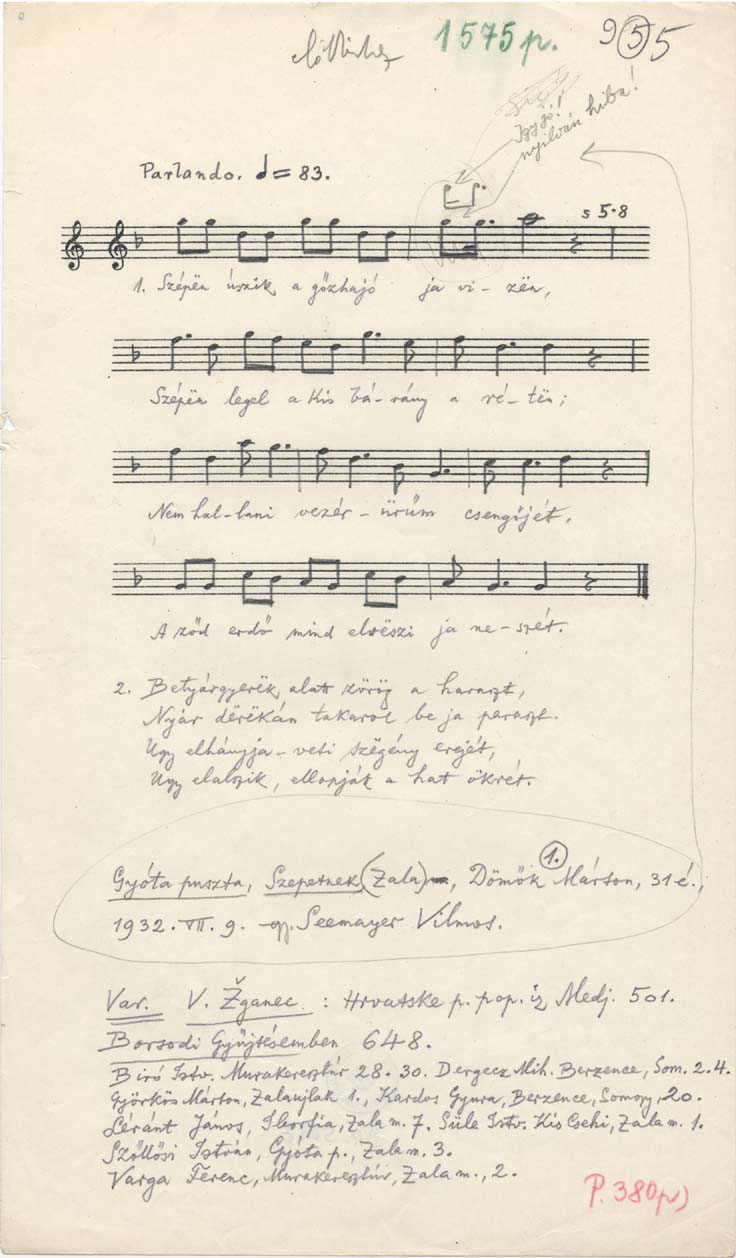 1575 p. 955
Így jó!
nyilván hiba!
Parlando. = 83.
s 5-8
1. Szépën úszik a gőzhajó ja vi - zën,
Szépën legel a kis bá - rány a ré - tën;
Nem hal - lani vezér - ürüm csengőjét,
A zöd erdő mind elvëszi ja ne - szét.
2. Betyárgyerëk, alatt zörög a haraszt,
Nyár dërëkán takarol be ja paraszt.
Ugy elhányja - veti szëgény erejét,
Ugy elalszik, ellopják a hat ökrét.
1.
Gyóta puszta, Szepetnek (Zala), Dömők Márton, 31 é.,
1932. VII. 9. gy. Seemayer Vilmos.
Var. V. Žganec : Hrvatske p. pop. iz Medj. 501.
Borsodi Gyűjtésemben 648.
Biró Istv. Murakeresztúr 28. 30. Dergecz Mih. Berzence, Som. 2. 4.
Györkös Márton, Zalaujlak 1., Kardos Gyura, Berzence, Somogy, 20.
Léránt János, Iborfia, Zala m. 7. Süle Istv. Kis Csehi, Zala m. 1.
Szőllősi István, Gyóta p., Zala m. 3.
Varga Ferenc, Murakeresztúr, Zala m., 2.
P. 380p)